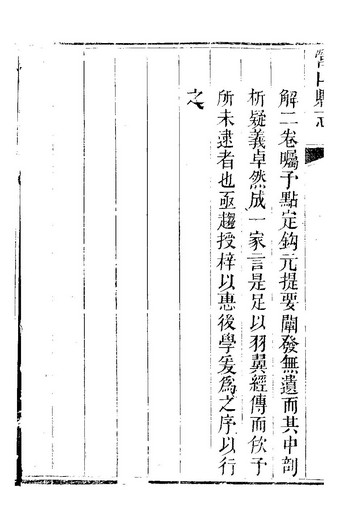 營山縣志
解二卷囑予點定鈎元提要闡發無遺而其中剖
析疑義卓然成一家言是足以羽翼經傳而佽予
所未逮者也亟趨授梓以惠後學爰爲之序以行
之